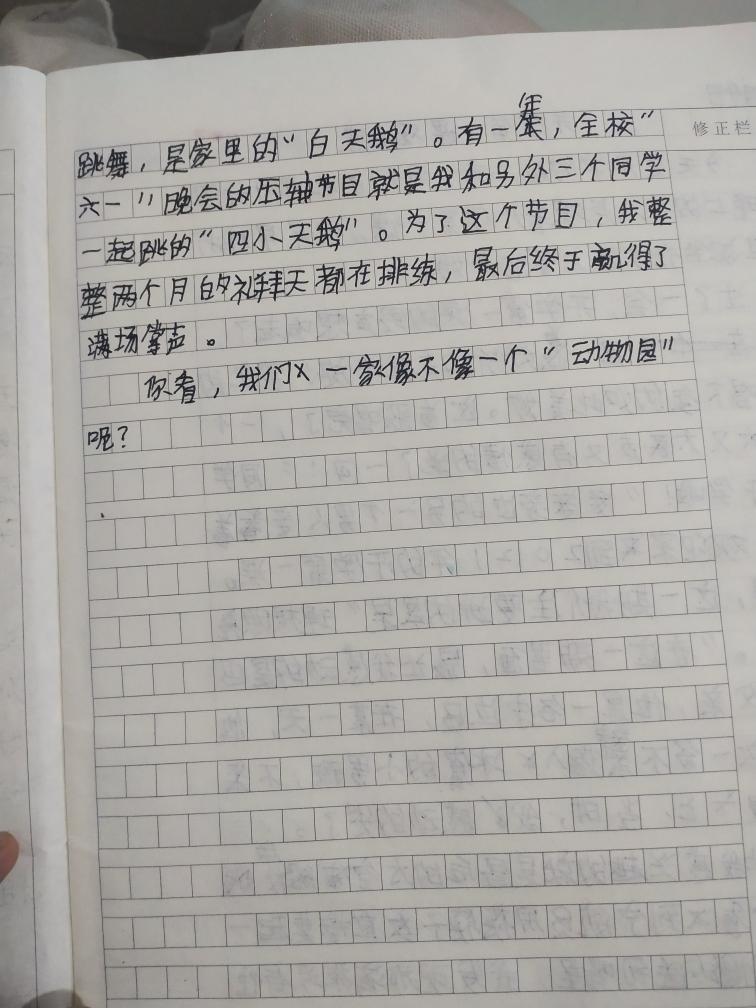 修正栏
跳舞，是家里的“白天鹅”。有一年，全校“
六一”晚会的压轴节目就是我和另外三个同学
一起跳的“四小天鹅”。为了这个节目，我整
整两个月的礼拜天都在排练，最后终于赢得了
满场掌声。
你看，我们一家像不像一个“动物园”
呢？